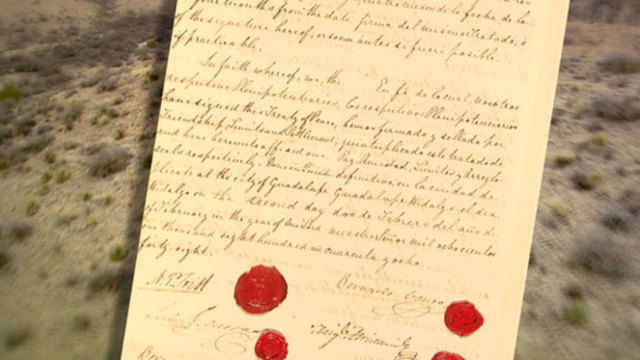 four months from the date
of the signature hereof, or sooner
if practicable.
In faith whereof, we, the
respective Plenipotentiaries,
have signed this Treaty of Peace,
Friendship, Limits and Settlement,
and have hereunto affixed our
seals respectively. Done in Quintu-
plicate at the city of Guadalupe
Hidalgo on the second day
of February in the year of our Lord
one thousand eight hundred and
forty eight.
cuatro meses de la fecha de la
firma del mismo Tratado, ó
antes si fuere posible.
En fé de lo cual, nosotros
los respectivos Plenipotenciarios
hemos firmado y sellado por
quintuplicado este tratado de
Paz, Amistad, Límites y Arreglo
definitivo, en la ciudad de
Guadalupe Hidalgo el dia
dos de Febrero del año de
nuestro Señor mil ochocientos
cuarenta y ocho.
N. P. Trist
Bernardo Couto